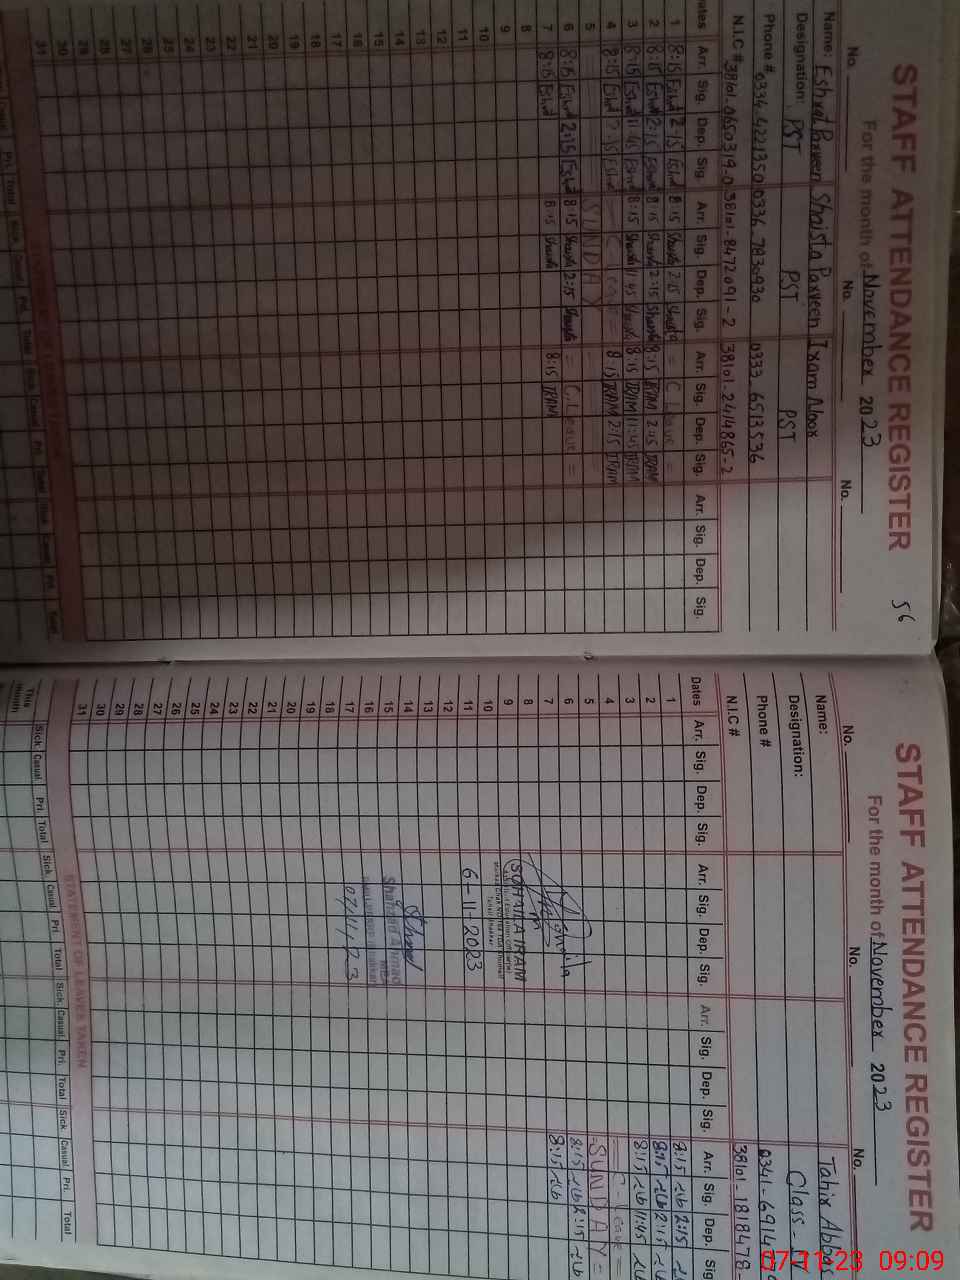 56
STAFF ATTENDANCE REGISTER
For the month of November 2023
No. No. No.
Name: Eshrat Parveen Shaista Parveen Iram Noor
Designation: PST PST PST
Phone # 0334-4221350 0336-7830930 0333-6513536
N.I.C # 38101-0650319-0 38101-8472091-2 38101-2414865-2
Dates Arr. Sig. Dep. Sig. Arr. Sig. Dep. Sig. Arr. Sig. Dep. Sig. Arr. Sig. Dep. Sig.
1 8:15 Eshrat 2:15 Eshrat 8:15 Shaista 2:15 Shaista = C. Leave =
2 8:15 Eshrat 2:15 Eshrat 8:15 Shaista 2:15 Shaista 8:15 IRAM 2:15 IRAM
3 8:15 Eshrat 11:45 Eshrat 8:15 Shaista 11:45 Shaista 8:15 IRAM 11:45 IRAM
4 8:15 Eshrat 2:15 Eshrat = C-Leave = 8:15 IRAM 2:15 IRAM
5 SUNDAY
6 8:15 Eshrat 2:15 Eshrat 8:15 Shaista 2:15 Shaista = C. Leave =
7 8:15 Eshrat 8:15 Shaista 8:15 IRAM
8
9
10
11
12
13
14
15
16
17
18
19
20
21
22
23
24
25
26
27
28
29
30
31
STAFF ATTENDANCE REGISTER
For the month of November 2023
No. No. No.
Name: Tahir Abbas
Designation: Class-IV
Phone # 0341-6914
N.I.C # 38101-1818478-
Dates Arr. Sig. Dep. Sig. Arr. Sig. Dep. Sig. Arr. Sig. Dep. Sig. Arr. Sig. Dep. Sig.
1 8:15 2:15
2 8:15 2:15
3 8:15 11:45
4 = C-Leave =
5 -SUNDAY-
6 8:15 2:15
7 8:15
8 SOHAILA IRAM
9
10
11 6-11-2023
12
13
14
15 Shahzad Ahmad
16
17 07/11/23
18
19
20
21
22
23
24
25
26
27
28
29
30
31
STATEMENT OF LEAVES TAKEN
Sick. Casual. Pri. Total Sick. Casual. Pri. Total Sick. Casual. Pri. Total Sick. Casual. Pri. Total
This Month
07-11-23 09:09